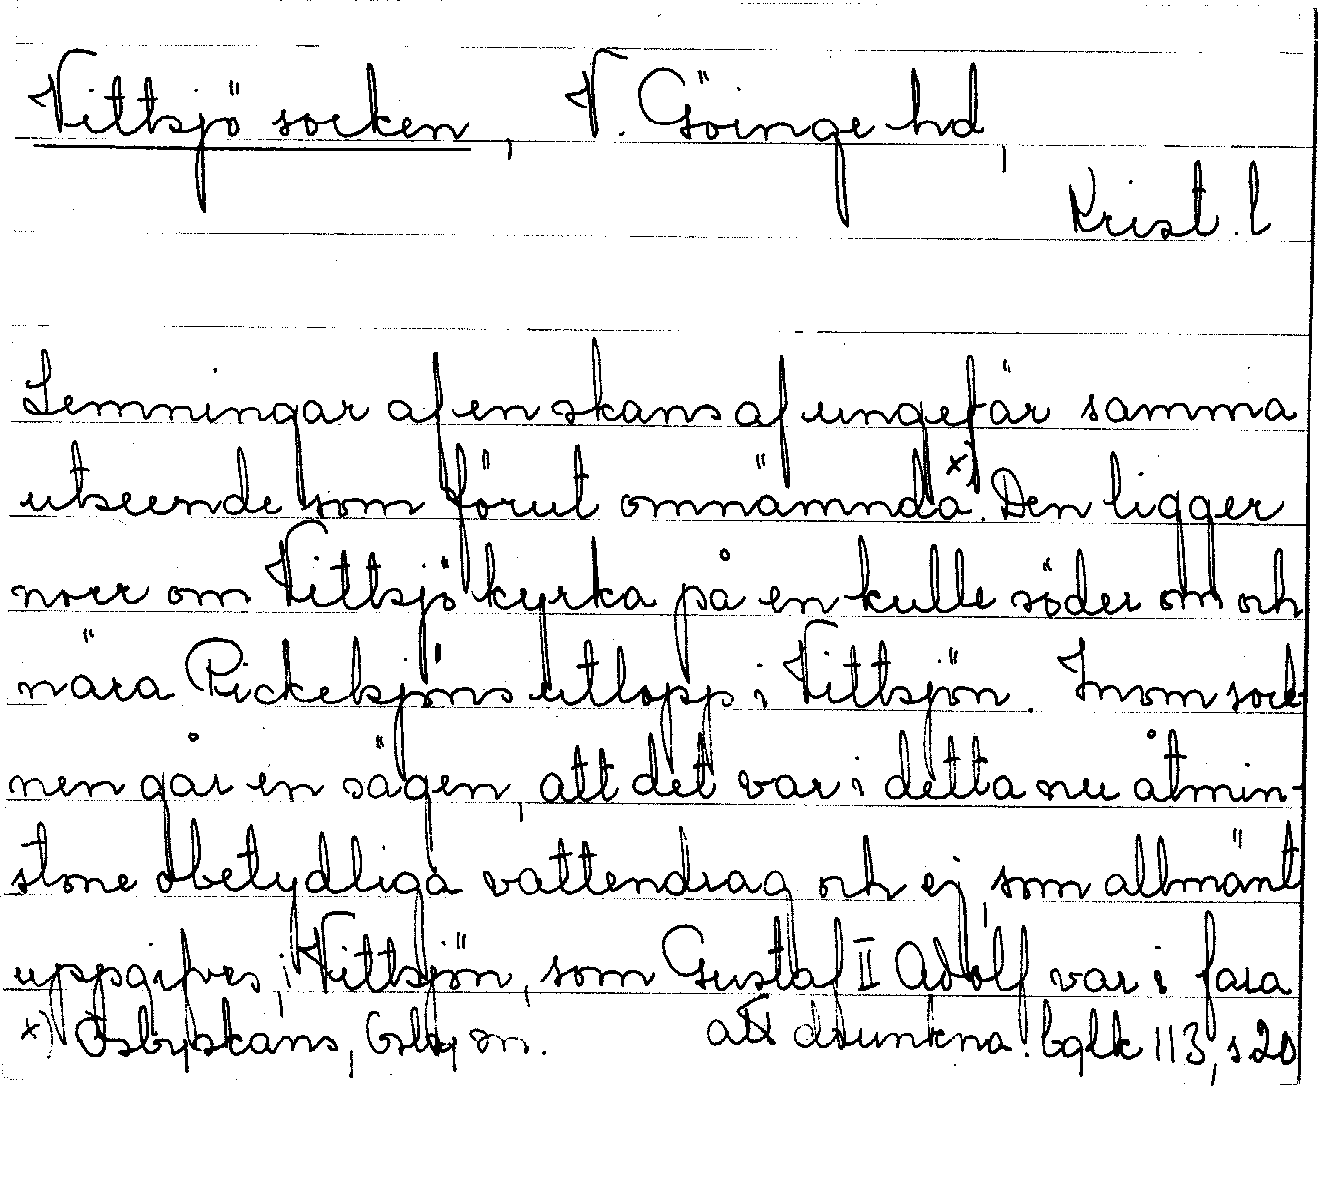 Vittsjö socken, V. Göinge hd,
Krist. l
Lemningar af en skans af ungefär samma
utseende som förut omnämnda x). Den ligger
norr om Vittsjö kyrka på en kulle söder om och
nära Pickelsjöns utlopp i Vittsjön. Inom sock
nen går en sägen, att det var i detta nu åtmin-
stone obetydliga vattendrag och ej, som allmänt
uppgifves, i Vittsjön, som Gustaf II Adolf var i fara
att drunkna. bglk 113, s 20
x) Osbyskans, Osby sn.